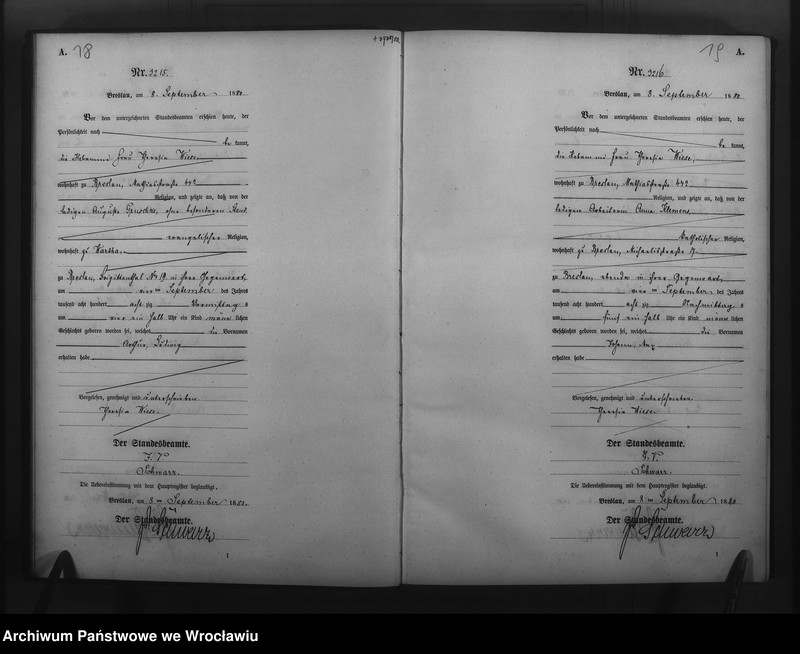 A. 18
Nr. 3215.
Breslau, am 8. September 1880
Vor dem unterzeichneten Standesbeamten erschien heute, der
Persönlichkeit nach
be kannt,
die Hebamme Frau Theresia Wiese,
wohnhaft zu Breslau, Mathiasstraße
Religion, und zeigte an, daß von der
ledigen Auguste ohne besonderen
evangelischer Religion,
wohnhaft zu Wartha
zu Breslau, No 19 in ihrer Gegenwart,
am vier ten September des Jahres
tausend acht hundert acht zig Vormittag s
um vier ein halb Uhr ein Kind männ lichen
Geschlechts geboren worden sei, welches die Vornamen
Arthur, Ludwig
erhalten habe
Vorgelesen, genehmigt und unterschrieben.
Theresia Wiese.
Der Standesbeamte.
J. V.
Schwarz.
Die Uebereinstimmung mit dem Hauptregister beglaubigt.
Breslau, am 8 ten September 1880.
Der Standesbeamte.
J. V. Schwarz
1
19 A.
Nr. 3216
Breslau, am 8. September 1880
Vor dem unterzeichneten Standesbeamten erschien heute, der
Persönlichkeit nach
be kannt,
die Hebamme Frau Theresia Wiese,
wohnhaft zu Breslau, Mathiasstraße
Religion, und zeigte an, daß von der
ledigen Arbeiterin Anna Klemens
katholischer Religion,
wohnhaft zu Breslau, Michaelisstraße
zu Breslau, ebenda in ihrer Gegenwart,
am vier ten September des Jahres
tausend acht hundert acht zig Nachmittag s
um fünf ein halb Uhr ein Kind männ lichen
Geschlechts geboren worden sei, welches die Vornamen
Johann, Max
erhalten habe
Vorgelesen, genehmigt und unterschrieben.
Theresia Wiese.
Der Standesbeamte.
J. V.
Schwarz.
Die Uebereinstimmung mit dem Hauptregister beglaubigt.
Breslau, am 8 ten September 1880
Der Standesbeamte.
J. V. Schwarz
1
Archiwum Państwowe we Wrocławiu